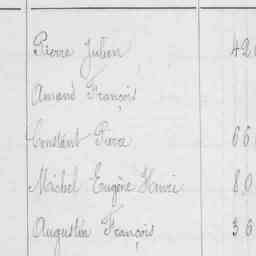 Pierre Julien 42
Amand François
Constant Pierre 66
Michel Eugène Henri 80
Augustin François 36